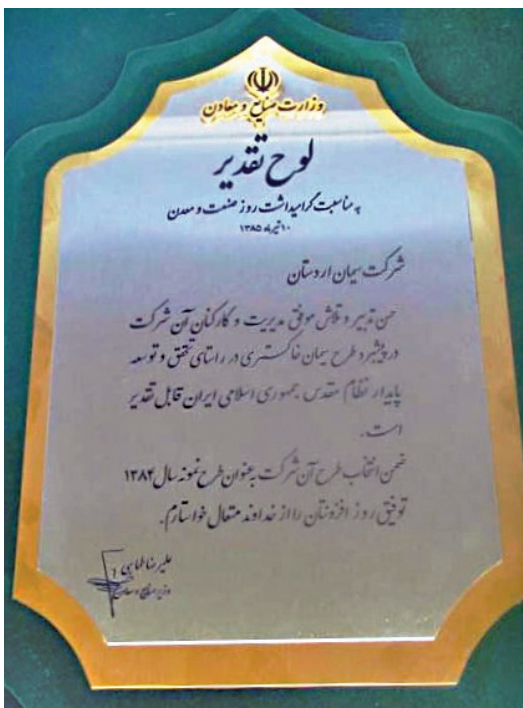 وزارت صنایع و معادن
لوح تقدیر
به مناسبت گرامیداشت روز صنعت و معدن
۱۰ تیرماه ۱۳۸۵
شرکت سیمان اردستان
حسن تدبیر و تلاش موفق مدیریت و کارکنان آن شرکت
در پیشبرد طرح سیمان خاکستری در راستای تحقق و توسعه
پایدار نظام مقدس جمهوری اسلامی ایران قابل تقدیر
است.
ضمن انتخاب طرح آن شرکت به عنوان طرح نمونه سال ۱۳۸۴
توفیق روز افزونتان را از خداوند متعال خواستارم.
علیرضا طهماسبی
وزیر صنایع و معادن